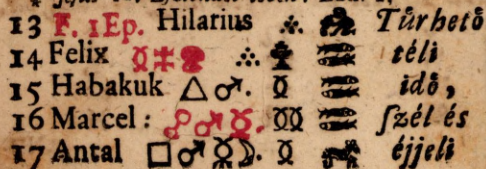 13 F. 1Ep. Hilarius Tűrhető
14 Felix téli
15 Habakuk △ ♂. idő,
16 Marcel: ☍ ♂ ſzél és
17 Antal □ ♂ ☽. éjjeli